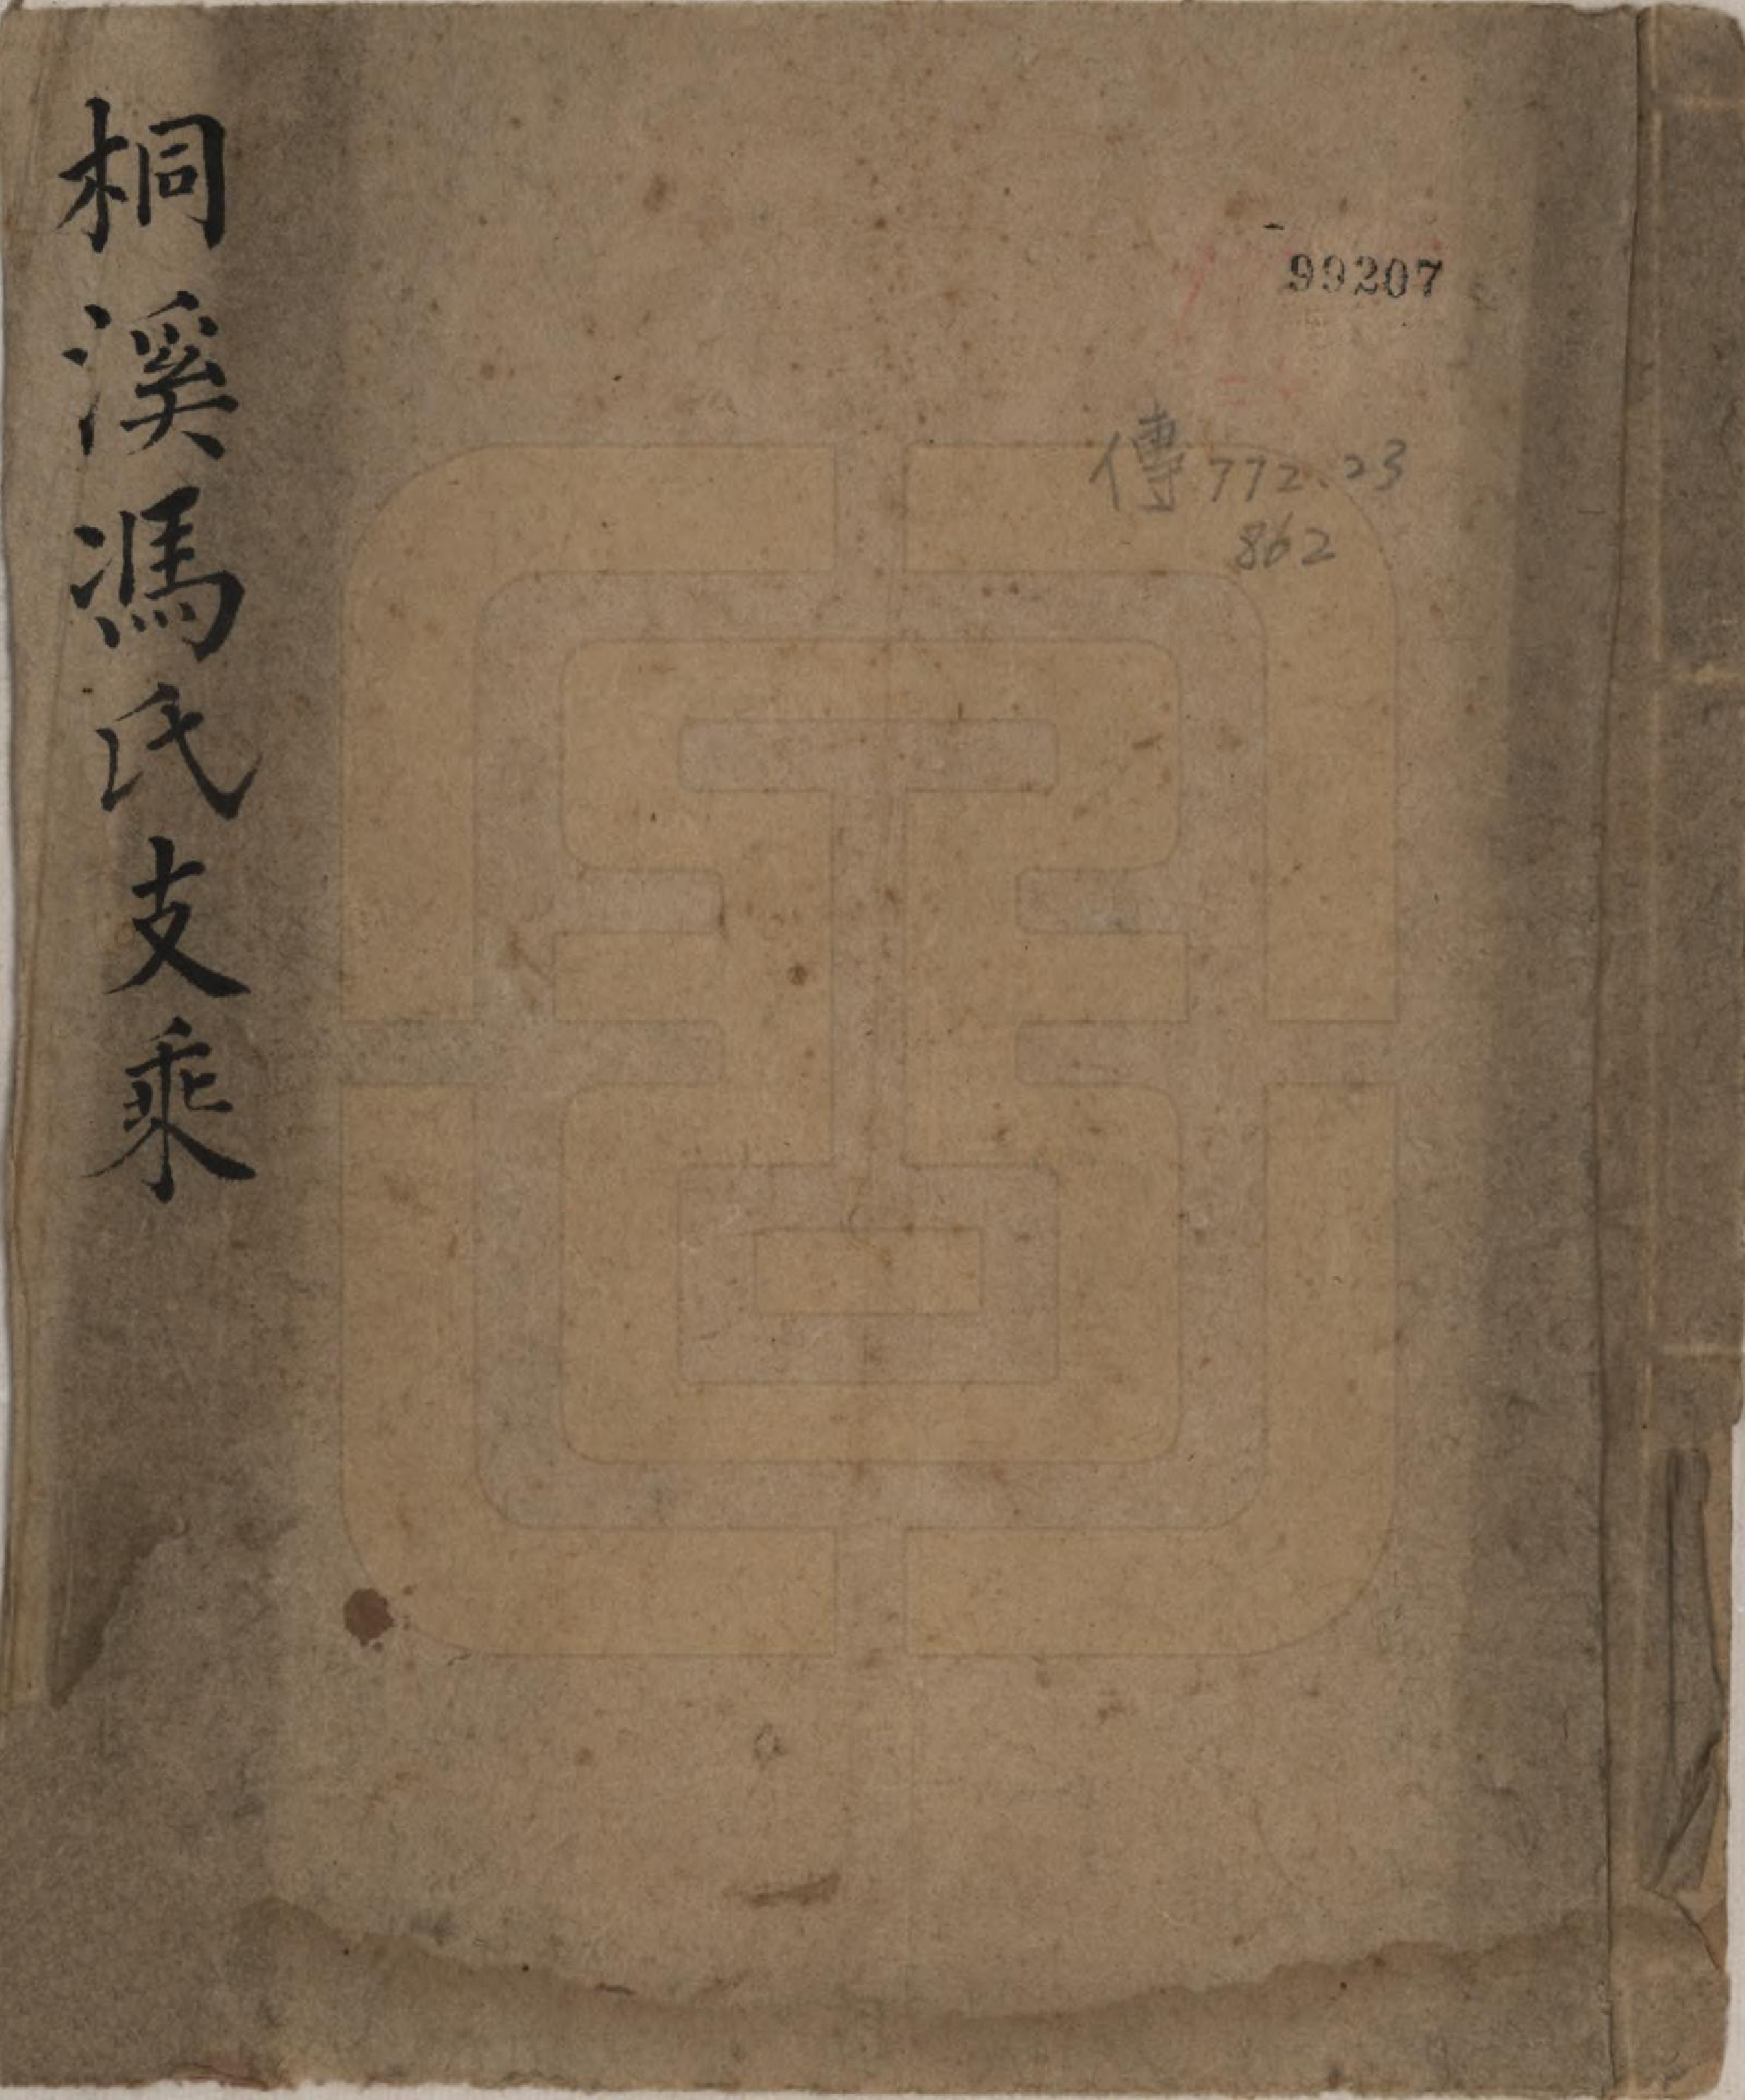 桐溪馮氏支乘
99207
傳772.23
862